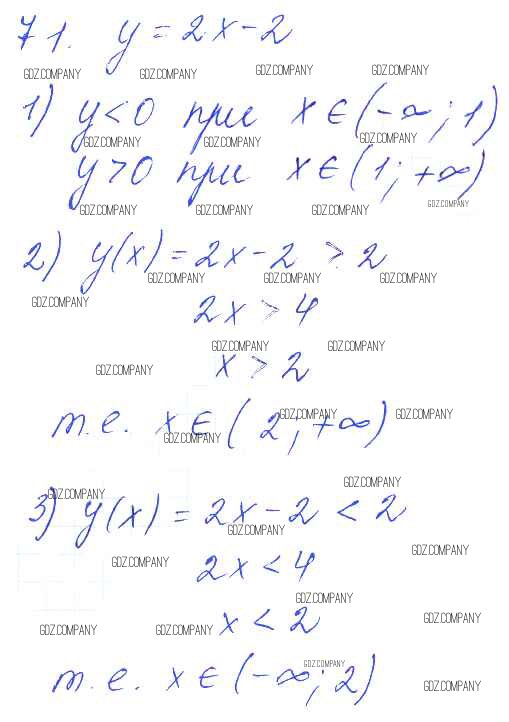 71. y = 2x - 2
GDZ.COMPANY GDZ.COMPANY GDZ.COMPANY GDZ.COMPANY
1) y < 0 при x ∈ (-∞; 1)
GDZ.COMPANY GDZ.COMPANY GDZ.COMPANY
y > 0 при x ∈ (1; +∞)
GDZ.COMPANY GDZ.COMPANY GDZ.COMPANY GDZ.COMPANY
2) y(x) = 2x - 2 > 2
GDZ.COMPANY GDZ.COMPANY GDZ.COMPANY GDZ.COMPANY
2x > 4
GDZ.COMPANY GDZ.COMPANY
x > 2
GDZ.COMPANY
т.е. x ∈ (2; +∞)
GDZ.COMPANY GDZ.COMPANY GDZ.COMPANY
GDZ.COMPANY GDZ.COMPANY
3) y(x) = 2x - 2 < 2
GDZ.COMPANY GDZ.COMPANY
2x < 4
GDZ.COMPANY GDZ.COMPANY
x < 2
GDZ.COMPANY GDZ.COMPANY GDZ.COMPANY
т.е. x ∈ (-∞; 2)
GDZ.COMPANY GDZ.COMPANY